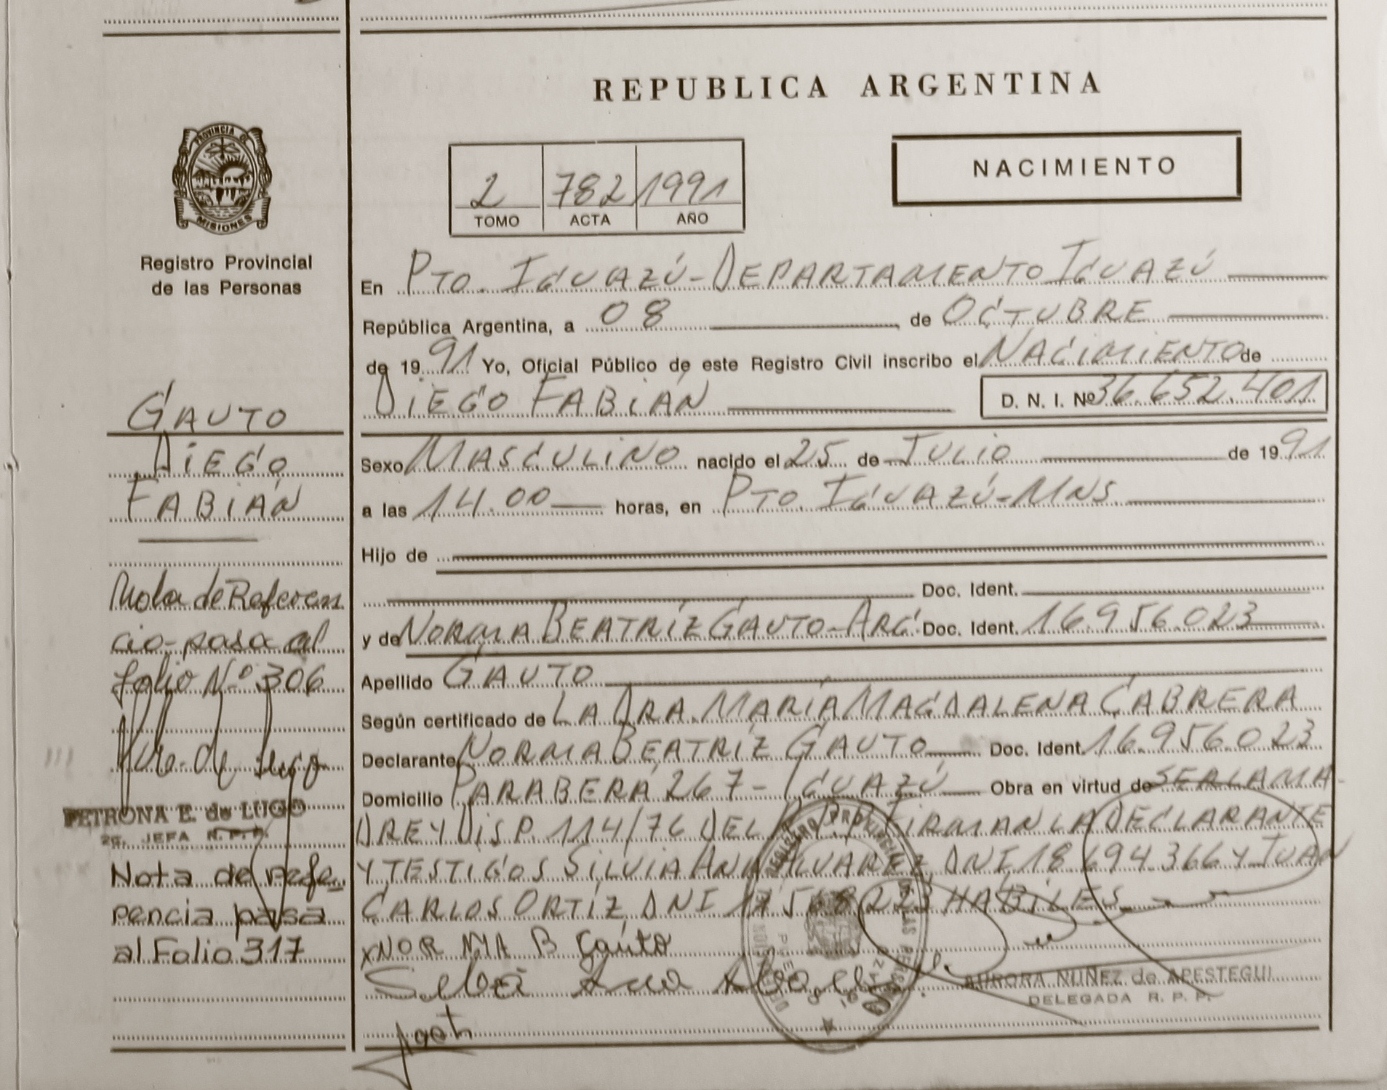 REPUBLICA ARGENTINA
PROVINCIA DE
MISIONES
Registro Provincial
de las Personas
NACIMIENTO
2 782 1991
TOMO ACTA AÑO
En PTO. IGUAZÚ-DEPARTAMENTO IGUAZÚ
República Argentina, a 08 de OCTUBRE
de 1991 Yo, Oficial Público de este Registro Civil inscribo el NACIMIENTO de
DIEGO FABIÁN D. N. I. Nº 36.652.401
Sexo MASCULINO nacido el 25 de JULIO de 1991
a las 14.00 horas, en PTO. IGUAZÚ-MNS
Hijo de
Doc. Ident.
y de NORMA BEATRÍZ GAUTO-ARG. Doc. Ident. 16.956.023
Apellido GAUTO
Según certificado de LA DRA. MARÍA MAGDALENA CABRERA
Declarante NORMA BEATRÍZ GAUTO Doc. Ident. 16.956.023
Domicilio PARABERÁ 267- IGUAZÚ Obra en virtud de SER LA MA-
DRE Y DISP. 114/76 DEL FIRMAN LA DECLARANTE
Y TESTIGOS SILVIA ANA ALVAREZ, DNI 18694366 Y JUAN
CARLOS ORTÍZ DNI HÁBILES
NORMA B Gauto
AURORA NUÑEZ de APESTEGUI
DELEGADA R. P. P.
GAUTO
DIEGO
FABIÁN
Nota de Referen
cia-pasa al
folio Nº 306
PETRONA E. de LUGO
JEFA R.P.P.
Nota de refe
rencia pasa
al Folio 317